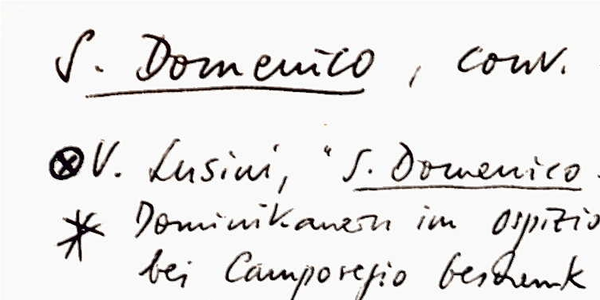 S. Domenico, conv.
⊗ V. Lusini, "S. Domenico
* Dominikanern im Ospizio
bei Camporegio beschenk